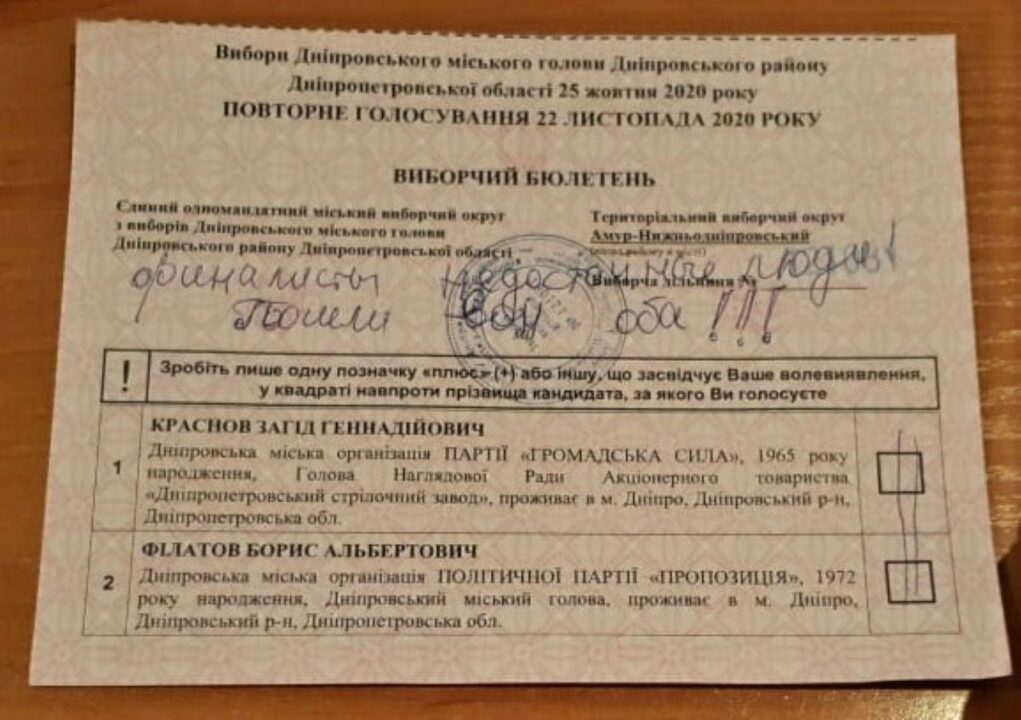 Вибори Дніпровського міського голови Дніпровського району
Дніпропетровської області 25 жовтня 2020 року
ПОВТОРНЕ ГОЛОСУВАННЯ 22 ЛИСТОПАДА 2020 РОКУ
ВИБОРЧИЙ БЮЛЕТЕНЬ
Єдиний одномандатний міський виборчий округ
з виборів Дніпровського міського голови
Дніпровського району Дніпропетровської області
Територіальний виборчий округ
Амур-Нижньодніпровський
Виборча дільниця №
финалисты недостойные люди
Пошли вон оба !!!
! Зробіть лише одну позначку «плюс» (+) або іншу, що засвідчує Ваше волевиявлення,
у квадраті навпроти прізвища кандидата, за якого Ви голосуєте
1
КРАСНОВ ЗАГІД ГЕННАДІЙОВИЧ
Дніпровська міська організація ПАРТІЇ «ГРОМАДСЬКА СИЛА», 1965 року
народження, Голова Наглядової Ради Акціонерного товариства
«Дніпропетровський стрілочний завод», проживає в м. Дніпро, Дніпровський р-н,
Дніпропетровська обл.
2
ФІЛАТОВ БОРИС АЛЬБЕРТОВИЧ
Дніпровська міська організація ПОЛІТИЧНОЇ ПАРТІЇ «ПРОПОЗИЦІЯ», 1972
року народження, Дніпровський міський голова, проживає в м. Дніпро,
Дніпровський р-н, Дніпропетровська обл.